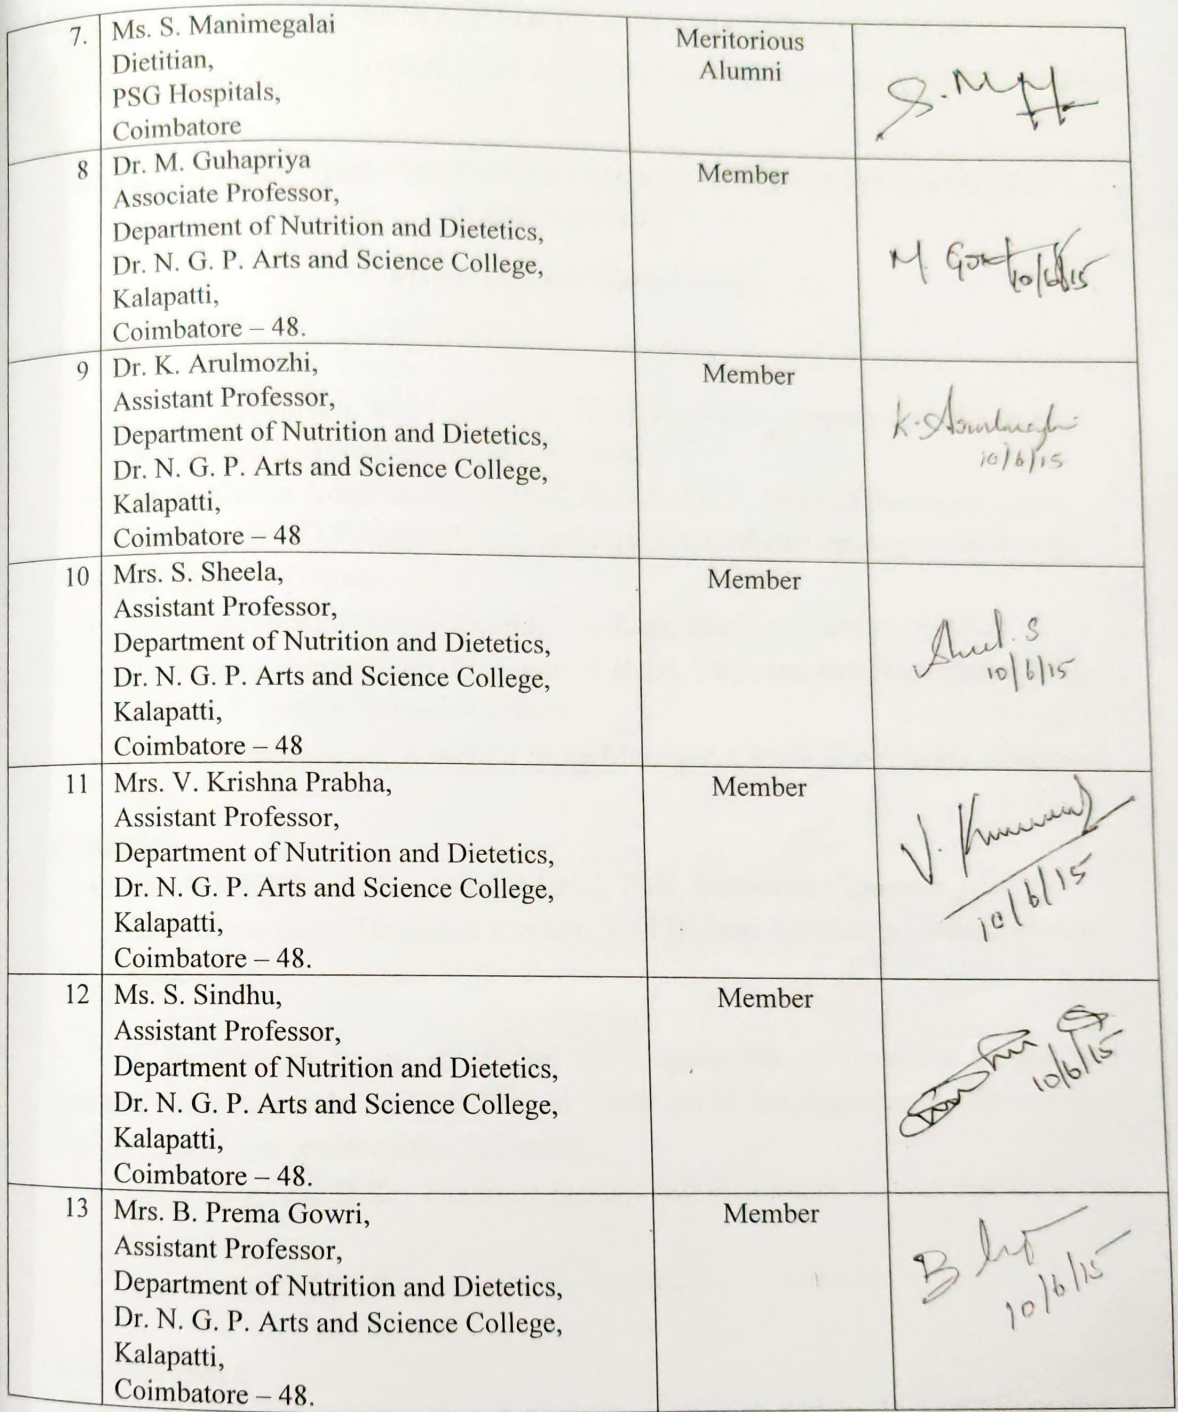 7. Ms. S. Manimegalai Meritorious
Dietitian, Alumni
PSG Hospitals,
Coimbatore
8 Dr. M. Guhapriya Member
Associate Professor,
Department of Nutrition and Dietetics,
Dr. N. G. P. Arts and Science College,
Kalapatti,
Coimbatore – 48.
10/6/15
9 Dr. K. Arulmozhi, Member
Assistant Professor,
Department of Nutrition and Dietetics,
Dr. N. G. P. Arts and Science College,
Kalapatti,
Coimbatore – 48
10/6/15
10 Mrs. S. Sheela, Member
Assistant Professor,
Department of Nutrition and Dietetics,
Dr. N. G. P. Arts and Science College,
Kalapatti,
Coimbatore – 48
10/6/15
11 Mrs. V. Krishna Prabha, Member
Assistant Professor,
Department of Nutrition and Dietetics,
Dr. N. G. P. Arts and Science College,
Kalapatti,
Coimbatore – 48.
10/6/15
12 Ms. S. Sindhu, Member
Assistant Professor,
Department of Nutrition and Dietetics,
Dr. N. G. P. Arts and Science College,
Kalapatti,
Coimbatore – 48.
10/6/15
13 Mrs. B. Prema Gowri, Member
Assistant Professor,
Department of Nutrition and Dietetics,
Dr. N. G. P. Arts and Science College,
Kalapatti,
Coimbatore – 48.
10/6/15